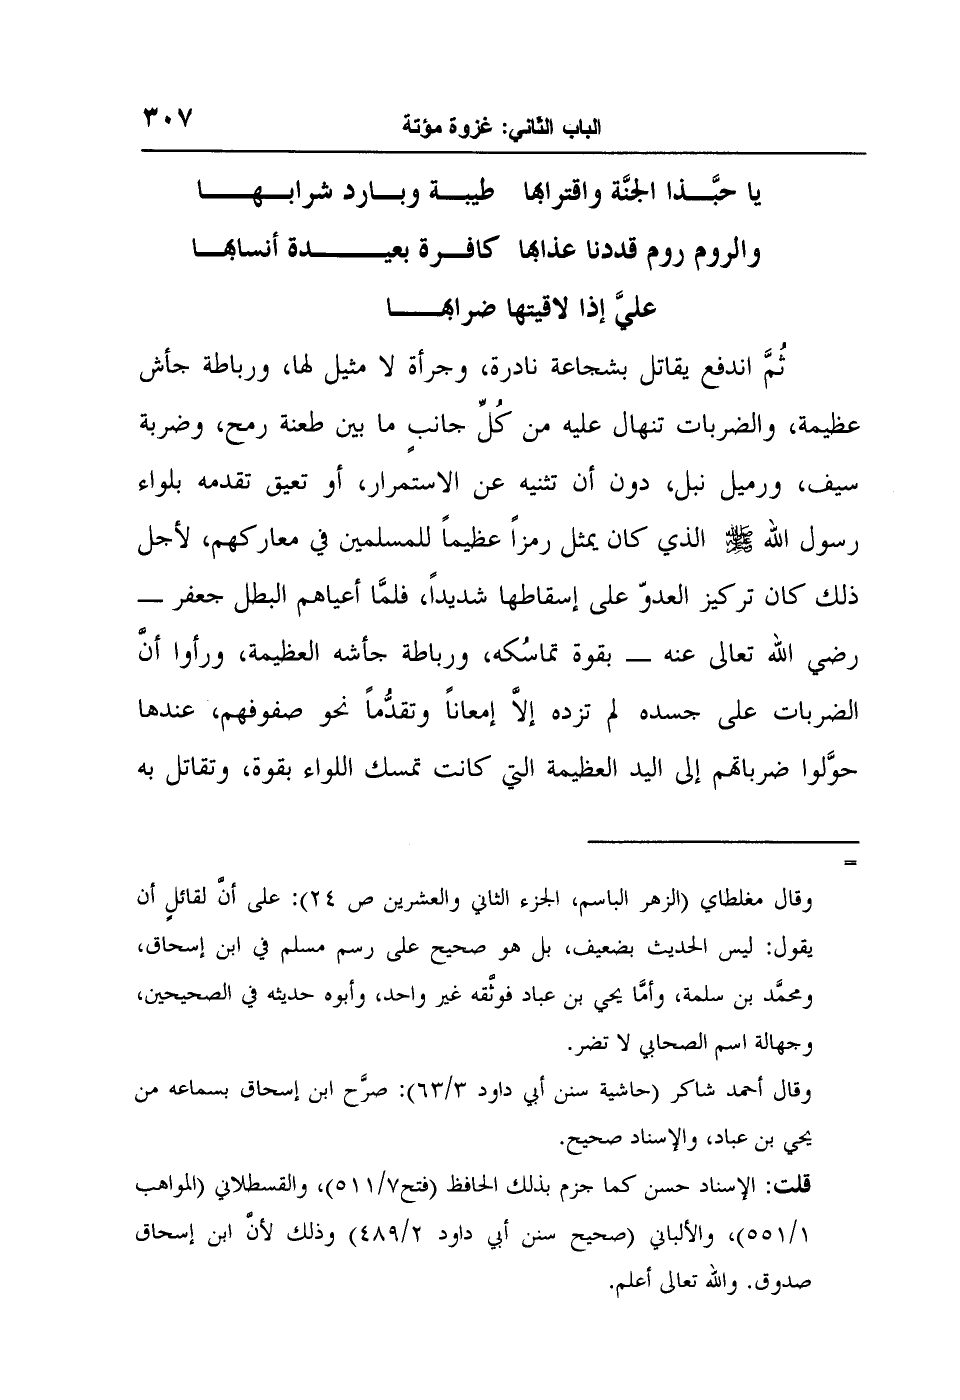 الباب الثاني: غزوة مؤتة ٣٠٧
يا حبَّـــذا الجنَّة واقترابها طيبـــة وبـــارد شرابـــهـــــا
والروم روم قددنا عذابها كافـــرة بعيـــــــدة أنسابهـــا
عليَّ إذا لاقيتها ضرابهـــــا
ثُمَّ اندفع يقاتل بشجاعة نادرة، وجرأة لا مثيل لها، ورباطة جأش
عظيمة، والضربات تنهال عليه من كُلِّ جانبٍ ما بين طعنة رمح، وضربة
سيف، ورميل نبل، دون أن تثنيه عن الاستمرار، أو تعيق تقدمه بلواء
رسول الله ﷺ الذي كان يمثل رمزاً عظيماً للمسلمين في معاركهم، لأجل
ذلك كان تركيز العدوّ على إسقاطها شديداً، فلمَّا أعياهم البطل جعفر ــ
رضي الله تعالى عنه ــ بقوة تماسُكه، ورباطة جأشه العظيمة، ورأوا أنَّ
الضربات على جسده لم تزده إلاَّ إمعاناً وتقدُّماً نحو صفوفهم، عندها
حوَّلوا ضرباتهم إلى اليد العظيمة التي كانت تمسك اللواء بقوة، وتقاتل به
=
وقال مغلطاي (الزهر الباسم، الجزء الثاني والعشرين ص ٢٤): على أنَّ لقائلٍ أن
يقول: ليس الحديث بضعيف، بل هو صحيح على رسم مسلم في ابن إسحاق،
ومحمَّد بن سلمة، وأمَّا يحي بن عباد فوثَّقه غير واحد، وأبوه حديثه في الصحيحين،
وجهالة اسم الصحابي لا تضر.
وقال أحمد شاكر (حاشية سنن أبي داود ٦٣/٣): صرَّح ابن إسحاق بسماعه من
يحي بن عباد، والإسناد صحيح.
قلت: الإسناد حسن كما جزم بذلك الحافظ (فتح٥١١/٧)، والقسطلاني (المواهب
٥٥١/١)، والألباني (صحيح سنن أبي داود ٤٨٩/٢) وذلك لأنَّ ابن إسحاق
صدوق. والله تعالى أعلم.